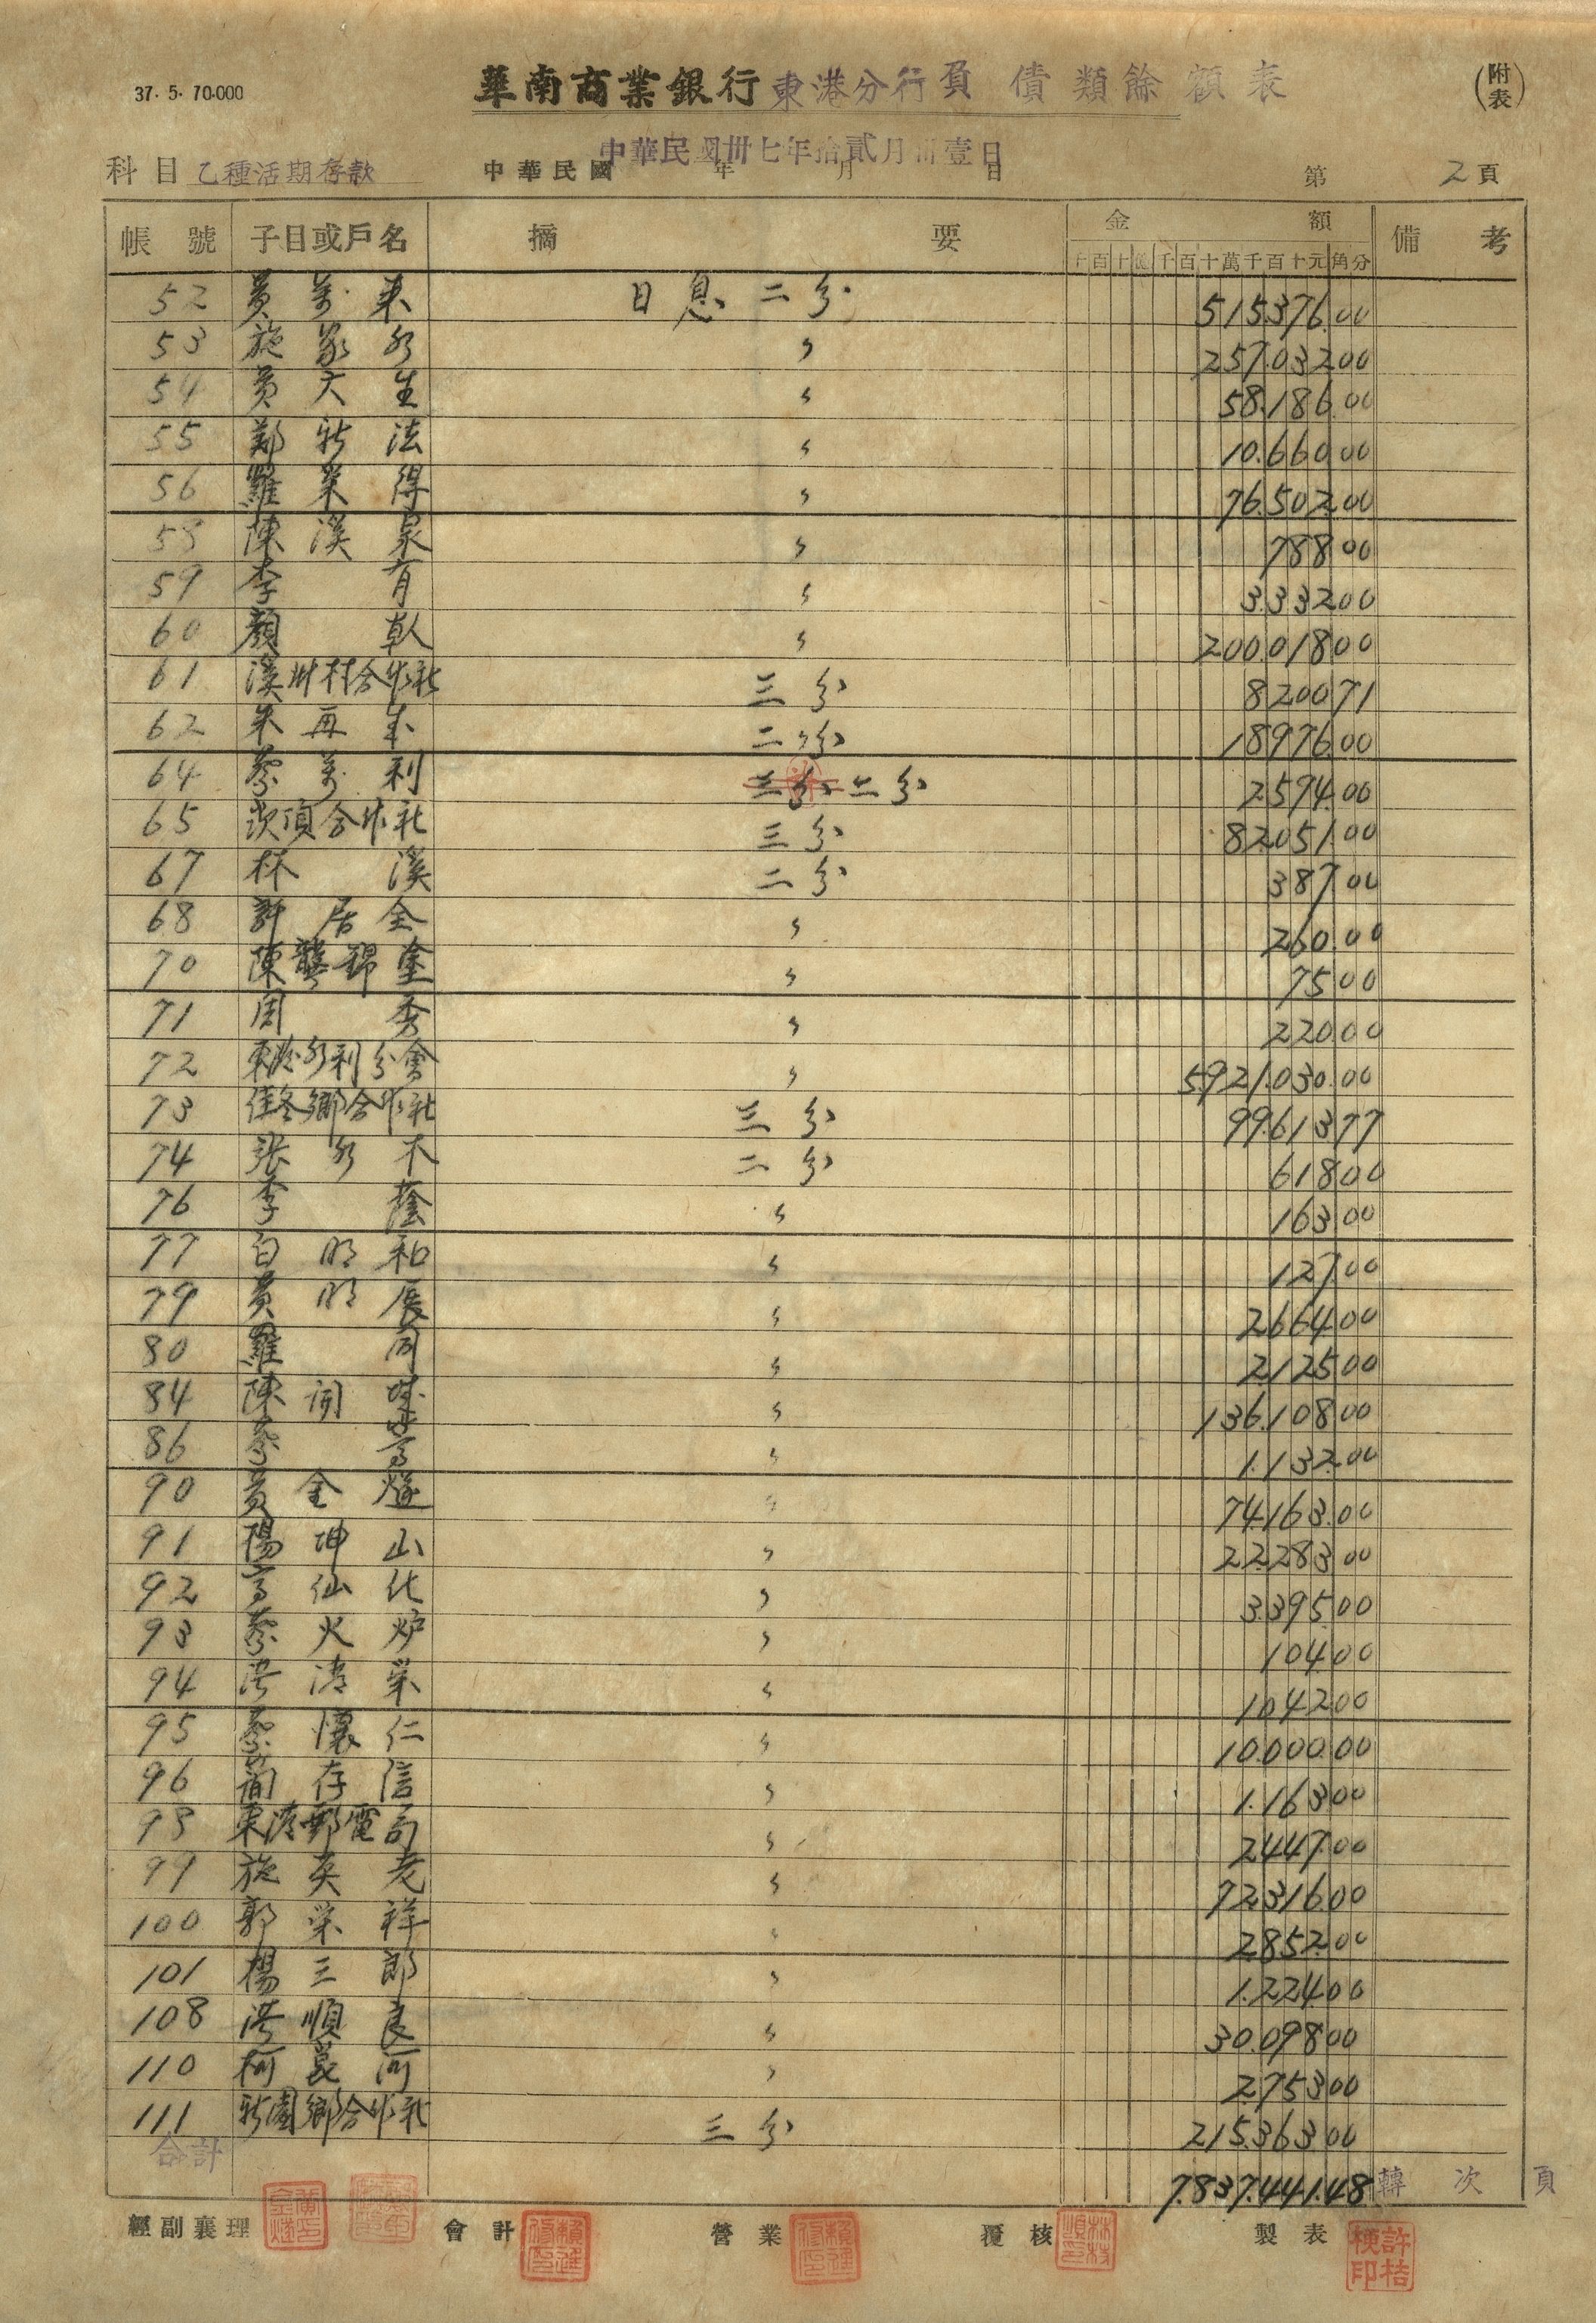 37. 5. 70.000
華南商業銀行東港分行負債類餘額表
(附表)
中華民國卅七年拾貳月卅壹日
科目 乙種活期存款 中華民國 年 月 日 第 2 頁
帳號 子目或戶名 摘要 金額 備考
千百十億千百十萬千百十元角分
52 黃萬來 日息二分 515376.00
53 施 〃 257.032.00
54 黃大生 〃 58.186.00
55 鄭新法 〃 10.660.00
56 羅業得 〃 76.502.00
58 陳溪泉 〃 788.00
59 李有 〃 3.332.00
60 顏 〃 200.018.00
61 溪州村合作社 三分 8200.71
62 朱再 二分 18976.00
64 蔡萬利 三分 二分 2594.00
65 頂合作社 三分 82.051.00
67 林溪 二分 387.00
68 許居全 〃 260.00
70 陳龔錦塗 〃 75.00
71 周秀 〃 220.00
72 東港水利分會 〃 5.921.030.00
73 佳冬鄉合作社 三分 99.613.77
74 張水木 二分 618.00
76 李蔭 〃 163.00
77 白明和 〃 127.00
79 黃明辰 〃 2.664.00
80 羅同 〃 2.125.00
84 陳 〃 136.108.00
86 蔡 〃 1.132.00
90 黃金燧 〃 74.163.00
91 楊坤山 〃 22.283.00
92 高仙化 〃 3.395.00
93 蔡火炉 〃 104.00
94 洪清榮 〃 1042.00
95 蔡懷仁 〃 10.000.00
96 簡存信 〃 1.163.00
98 東港郵電局 〃 2.447.00
99 施英老 〃 72.316.00
100 郭榮祥 〃 2.852.00
101 楊三郎 〃 1.224.00
108 洪順良 〃 30.098.00
110 柯崑河 〃 2.753.00
111 新園鄉合作社 三分 215.363.00
合計 7.837.441.48 轉次頁
經副襄理 會計 營業 覆核 製表